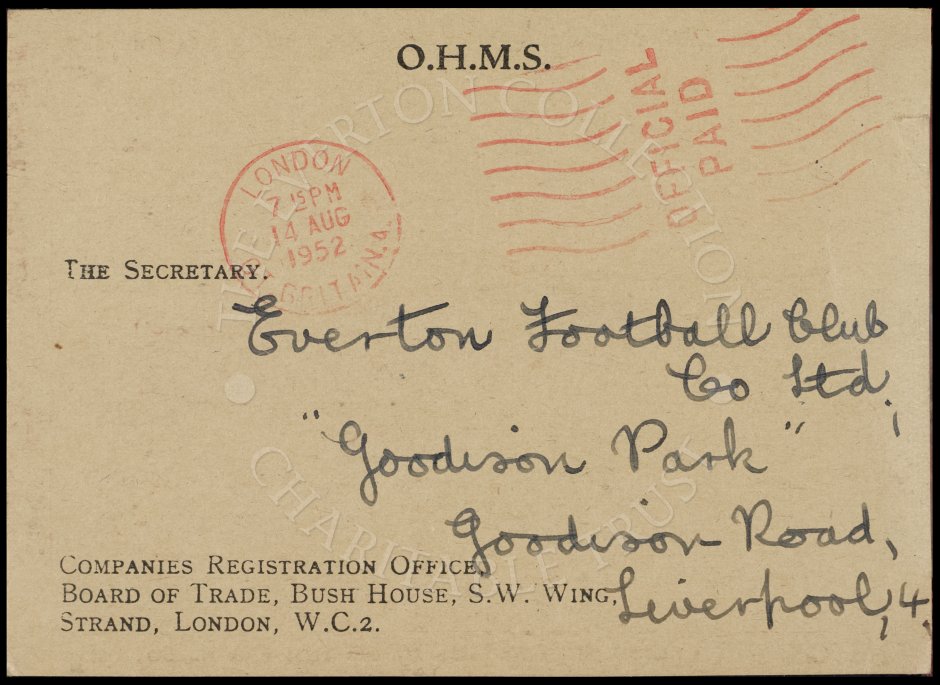 O.H.M.S.
OFFICIAL
PAID
LONDON
7 15 PM
14 AUG
1952
THE SECRETARY.
Everton Football Club
Co Ltd,
"Goodison Park"
Goodison Road,
Liverpool, 4.
COMPANIES REGISTRATION OFFICE,
BOARD OF TRADE, BUSH HOUSE, S.W. WING,
STRAND, LONDON, W.C.2.
THE EVERTON COLLECTION
CHARITABLE TRUST